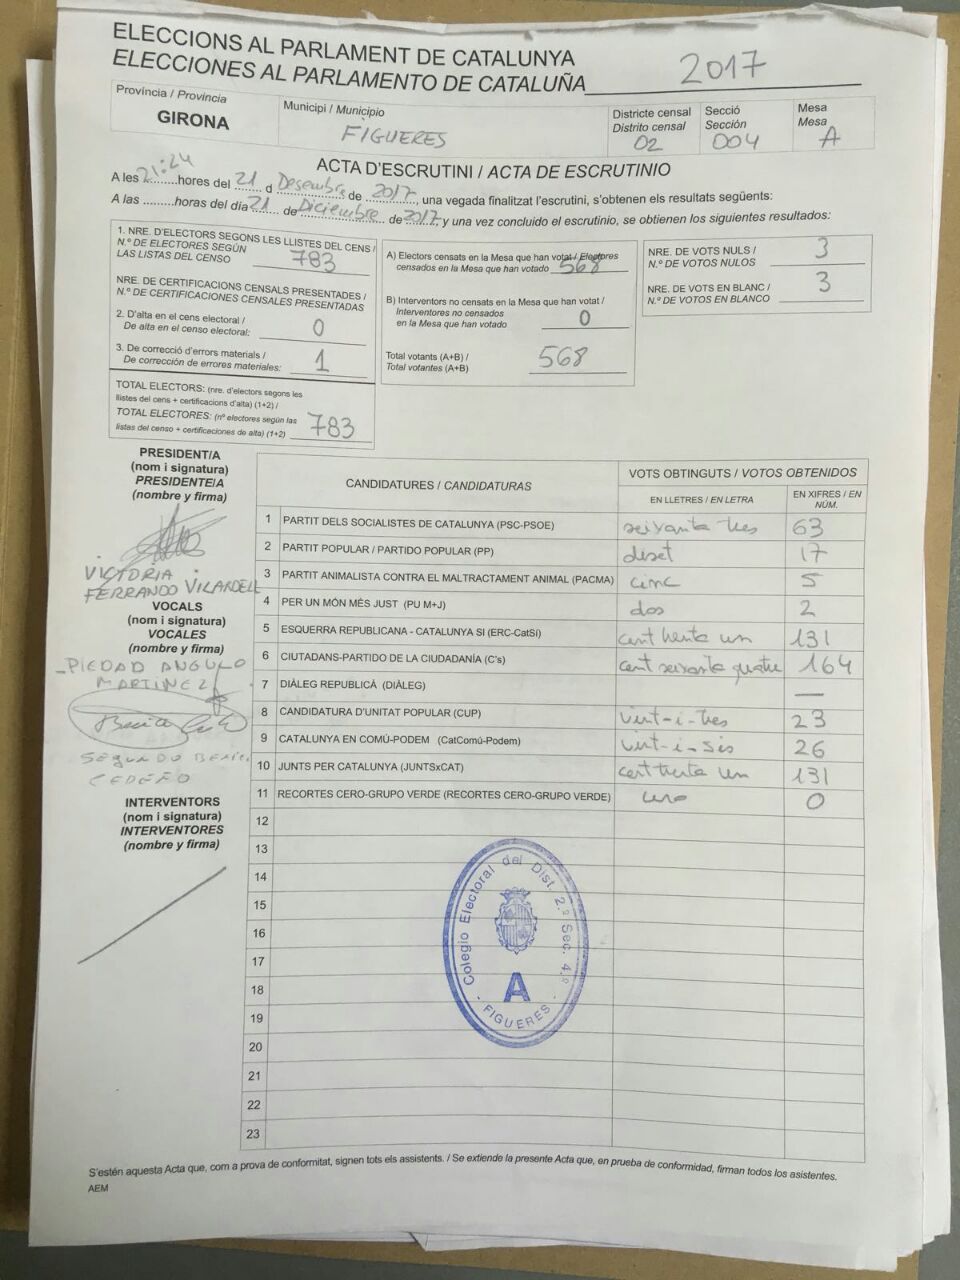 ELECCIONS AL PARLAMENT DE CATALUNYA
ELECCIONES AL PARLAMENTO DE CATALUÑA 2017
Província / Provincia
GIRONA
Municipi / Municipio
FIGUERES
Districte censal
Distrito censal
02
Secció
Sección
004
Mesa
Mesa
A
ACTA D'ESCRUTINI / ACTA DE ESCRUTINIO
A les 21:24 hores del 21 d Desembre de 2017, una vegada finalitzat l'escrutini, s'obtenen els resultats següents:
A las .........horas del día 21 de Diciembre de 2017, y una vez concluido el escrutinio, se obtienen los siguientes resultados:
1. NRE. D'ELECTORS SEGONS LES LLISTES DEL CENS /
N.º DE ELECTORES SEGÚN
LAS LISTAS DEL CENSO 783
NRE. DE CERTIFICACIONS CENSALS PRESENTADES /
N.º DE CERTIFICACIONES CENSALES PRESENTADAS
2. D'alta en el cens electoral /
De alta en el censo electoral: 0
3. De correcció d'errors materials /
De corrección de errores materiales: 1
TOTAL ELECTORS: (nre. d'electors segons les
llistes del cens + certificacions d'alta) (1+2) /
TOTAL ELECTORES: (nº electores según las
listas del censo + certificaciones de alta) (1+2) 783
A) Electors censats en la Mesa que han votat / Electores
censados en la Mesa que han votado 568
B) Interventors no censats en la Mesa que han votat /
Interventores no censados
en la Mesa que han votado 0
Total votants (A+B) /
Total votantes (A+B) 568
NRE. DE VOTS NULS /
N.º DE VOTOS NULOS 3
NRE. DE VOTS EN BLANC /
N.º DE VOTOS EN BLANCO 3
PRESIDENT/A
(nom i signatura)
PRESIDENTE/A
(nombre y firma)
VICTORIA
FERRANDO VILARDELL
VOCALS
(nom i signatura)
VOCALES
(nombre y firma)
PIEDAD ANGULO
MARTINEZ
SEGUNDO
CEDEÑO
INTERVENTORS
(nom i signatura)
INTERVENTORES
(nombre y firma)
CANDIDATURES / CANDIDATURAS
VOTS OBTINGUTS / VOTOS OBTENIDOS
EN LLETRES / EN LETRA
EN XIFRES / EN
NÚM.
1 PARTIT DELS SOCIALISTES DE CATALUNYA (PSC-PSOE) seixanta tres 63
2 PARTIT POPULAR / PARTIDO POPULAR (PP) disset 17
3 PARTIT ANIMALISTA CONTRA EL MALTRACTAMENT ANIMAL (PACMA) cinc 5
4 PER UN MÓN MÉS JUST (PU M+J) dos 2
5 ESQUERRA REPUBLICANA - CATALUNYA SI (ERC-CatSí) cent trenta un 131
6 CIUTADANS-PARTIDO DE LA CIUDADANÍA (C's) cent seixanta quatre 164
7 DIÀLEG REPUBLICÀ (DIÀLEG) —
8 CANDIDATURA D'UNITAT POPULAR (CUP) vint-i-tres 23
9 CATALUNYA EN COMÚ-PODEM (CatComú-Podem) vint-i-sis 26
10 JUNTS PER CATALUNYA (JUNTSxCAT) cent trenta un 131
11 RECORTES CERO-GRUPO VERDE (RECORTES CERO-GRUPO VERDE) cero 0
12
13
14
15
16
17
18
19
20
21
22
23
Colegio Electoral del Dist. 2.º Sec. 4.º
A
- FIGUERES -
S'estén aquesta Acta que, com a prova de conformitat, signen tots els assistents. / Se extiende la presente Acta que, en prueba de conformidad, firman todos los asistentes.
AEM